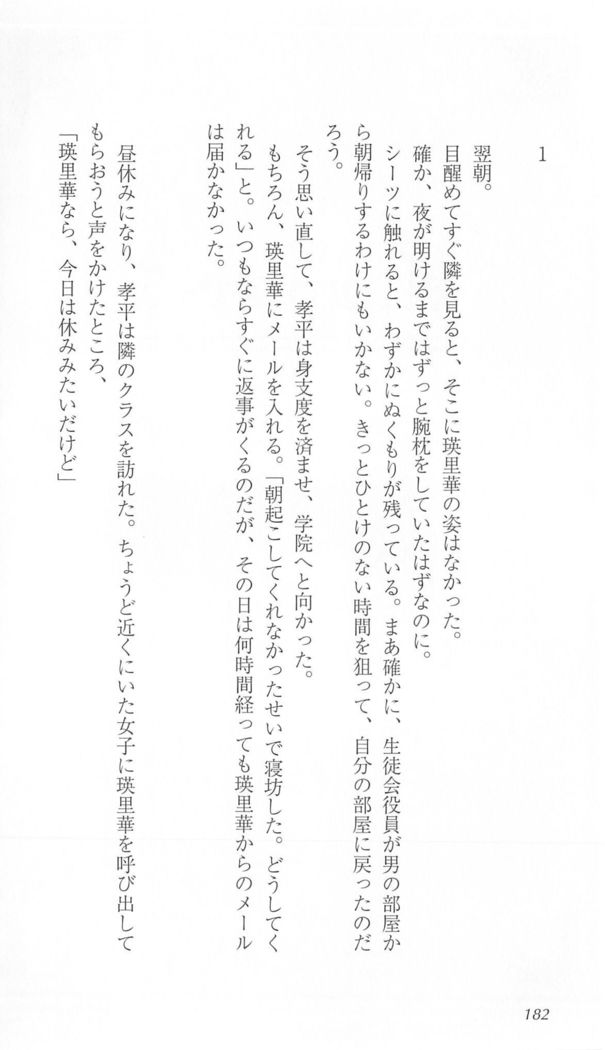 1
翌朝。
目醒めてすぐ隣を見ると、そこに瑛里華の姿はなかった。
確か、夜が明けるまではずっと腕枕をしていたはずなのに。
シーツに触れると、わずかにぬくもりが残っている。まあ確かに、生徒会役員が男の部屋か
ら朝帰りするわけにもいかない。きっとひとけのない時間を狙って、自分の部屋に戻ったのだ
ろう。
そう思い直して、孝平は身支度を済ませ、学院へと向かった。
もちろん、瑛里華にメールを入れる。「朝起こしてくれなかったせいで寝坊した。どうしてく
れる」と。いつもならすぐに返事がくるのだが、その日は何時間経っても瑛里華からのメール
は届かなかった。
昼休みになり、孝平は隣のクラスを訪れた。ちょうど近くにいた女子に瑛里華を呼び出して
もらおうと声をかけたところ、
「瑛里華なら、今日は休みみたいだけど」
182